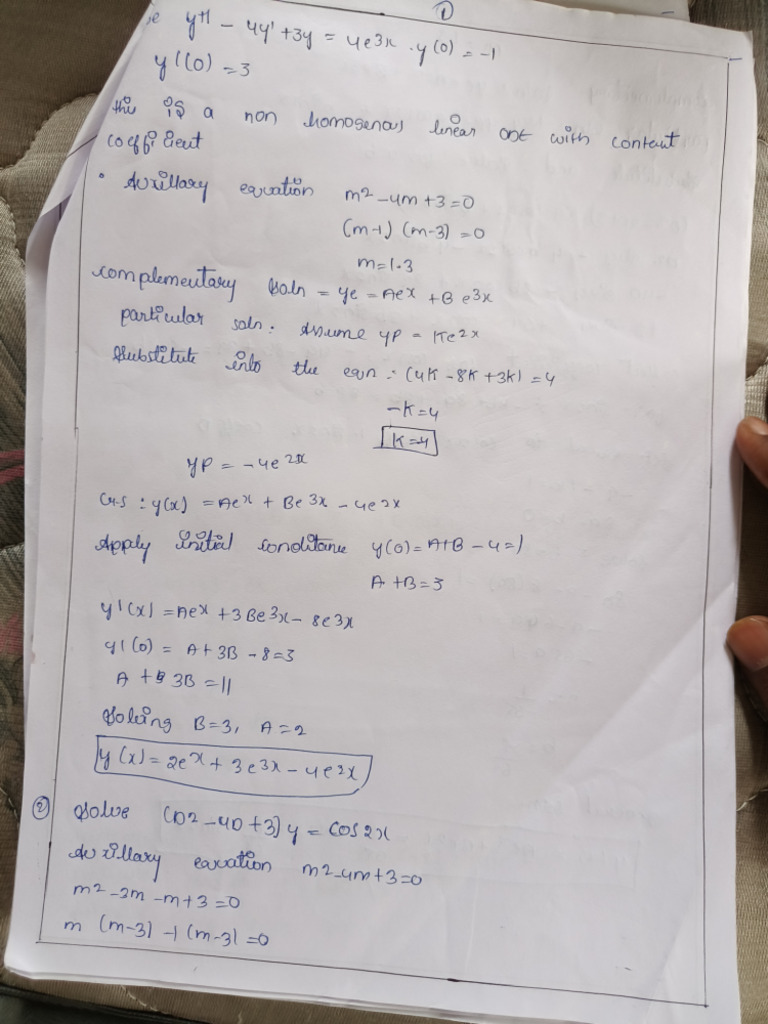 ①
e y11 - 4y' + 3y = 4e3x . y(0) = -1
y1(0) = 3
this is a non homogenas linear ODE with contant
coefficient
• Auxillary equation m2 - 4m + 3 = 0
(m-1) (m-3) = 0
m = 1.3
complementary soln = yc = Aex + B e3x
particular soln: Assume yp = Ke2x
Substitute into the eqn : (4K - 8K + 3K) = 4
-K = 4
K = 4
yp = -4e2x
G.S : y(x) = Aex + Be3x - 4e2x
Apply initial y(0) = A+B - 4 = 1
A + B = 3
y1(x) = Aex + 3Be3x - 8e3x
y1(0) = A + 3B - 8 = 3
A + 3B = 11
Solving B = 3, A = 2
y(x) = 2ex + 3e3x - 4e2x
② Solve (D2 - 4D + 3) y = cos2x
Auxillary equation m2 - 4m + 3 = 0
m2 - 3m - m + 3 = 0
m (m-3) - 1 (m-3) = 0